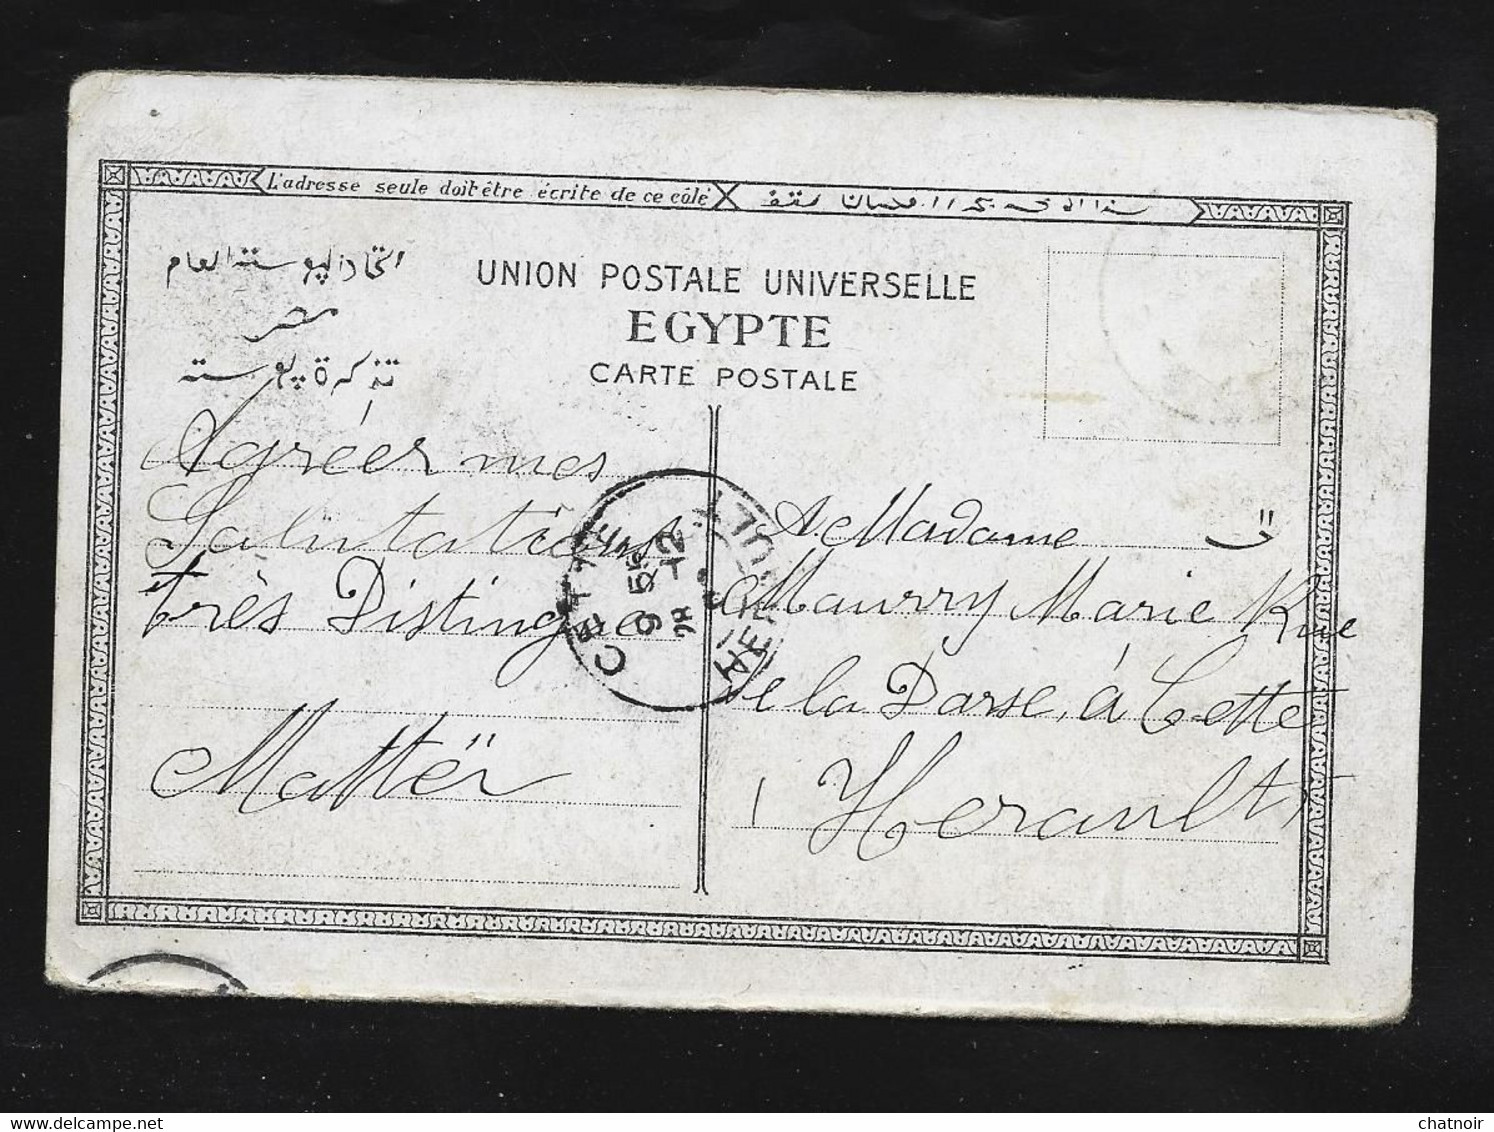 L'adresse seule doit être écrite de ce côté
اتحاد البوسته العام
مصر
تذكرة بوسته
UNION POSTALE UNIVERSELLE
EGYPTE
CARTE POSTALE
Agréer mes
Salutations
très Distingue
Mattër
CETTE
9 55
28 -12
HERAULT
A Madame
Maurry Marie Rue
de la Darse, à Cette
Herault
chatnoir